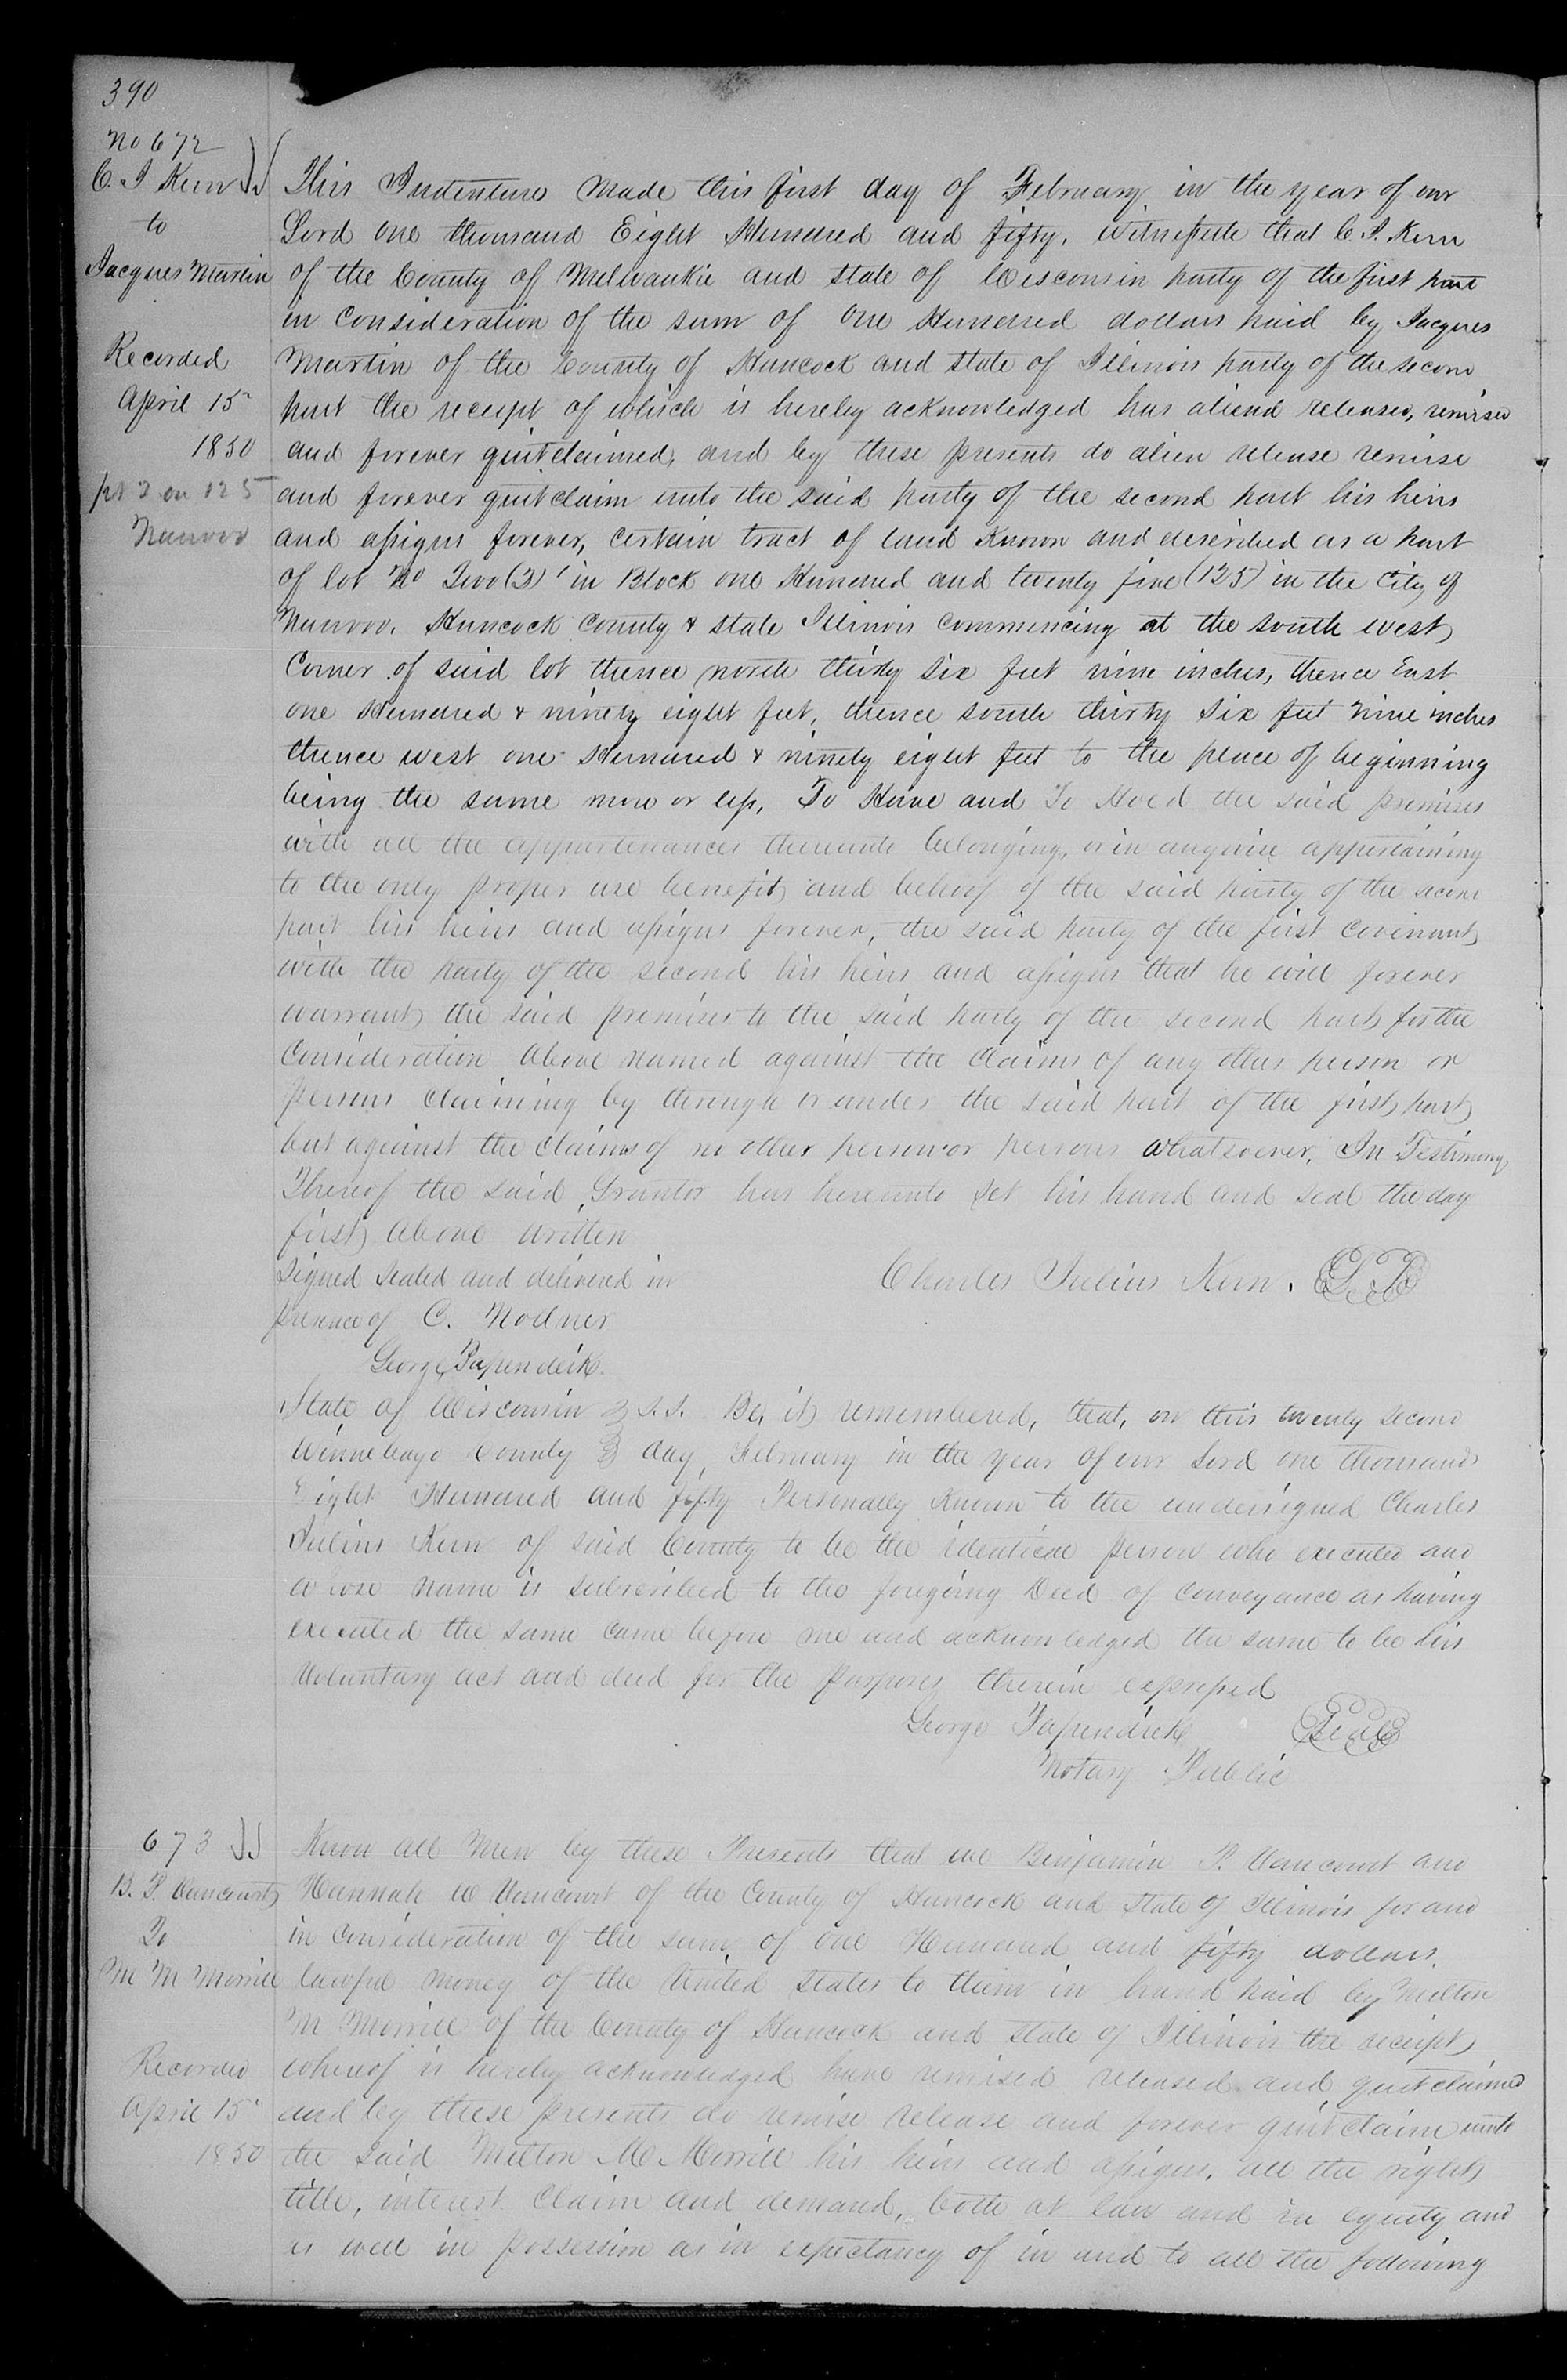 390
No 672
C. J Kern
to
Jacques Martin
Recorded
April 15"
1850
pt 2 on 125
Nauvoo
This Indenture Made this first day of February in the year of our
Lord one thousand Eight Hundred and fifty, witnesseth that C. J. Kern
of the County of Milwaukie and state of Wisconsin party of the first part
in consideration of the sum of One Hundred dollars paid by Jacques
Martin of the County of Hancock and state of Illinois party of the second
part the receipt of which is hereby acknowledged has aliend released, remised
and forever quitclaimed, and by these presents do alien release remise
and forever quitclaim unto the said party of the second part his heirs
and assigns forever, certain tract of land known and described as a part
of lot No Two (2) in Block one Hundred and twenty five (125) in the City of
Nauvoo. Hancock County & state Illinois commencing at the south west
Corner of said lot thence north thirty six feet nine inches, thence East
one Hundred & ninety eight feet, thence south thirty six feet nine inches
thence west one Hundred & ninety eight feet to the place of beginning
being the same more or less, To Have and To Hold the said premises
with all the appurtenances thereunto belonging, or in anywise appertaining
to the only proper use benefit and behoof of the said party of the second
part his heirs and assigns forever, the said party of the first covenants
with the party of the second his heirs and assigns that he will forever
warrant the said premises to the said party of the second part for the
consideration above named against the claims of any other person or
persons claiming by through or under the said part of the first part
but against the claims of no other person or persons whatsoever. In Testimony
Thereof the said Grantor has hereunto set his hand and seal the day
first above written
Signed sealed and delivered in
Charles Julius Kern. L. S
presence of C. Nodner
George Papendick.
State of Wisconsin } S.S. Be, it remembered, that, on this twenty second
Winnebago County } day, February in the year of our Lord one thousand
Eight Hundred and fifty Personally Known to the undersigned Charles
Julius Kern of said County to be the identical person who executed and
whose name is subscribed to the foregoing Deed of conveyance as having
executed the same came before me and acknowledged the same to be his
Voluntary act and deed for the purposes therein expressed
George Papendick Seal
Notary Public
673
B. P. Vancourt
To
M M Morrill
Recorded
April 15"
1850
Know all Men by these Presents that we Benjamin P. Vancourt and
Hannah W Vancourt of the County of Hancock and State of Illinois for and
in consideration of the sum of one Hundred and fifty dollars.
lawful money of the United States to them in hand paid by Milton
M Morrill of the County of Hancock and state of Illinois the receipt
whereof is hereby acknowledged have remised released and quitclaimed
and by these presents do remise release and forever quitclaim unto
the said Milton M Morrill his heirs and assigns, all the right
title, interest claim and demand, both at law and in equity and
as well in possession as in expectancy of in and to all the following